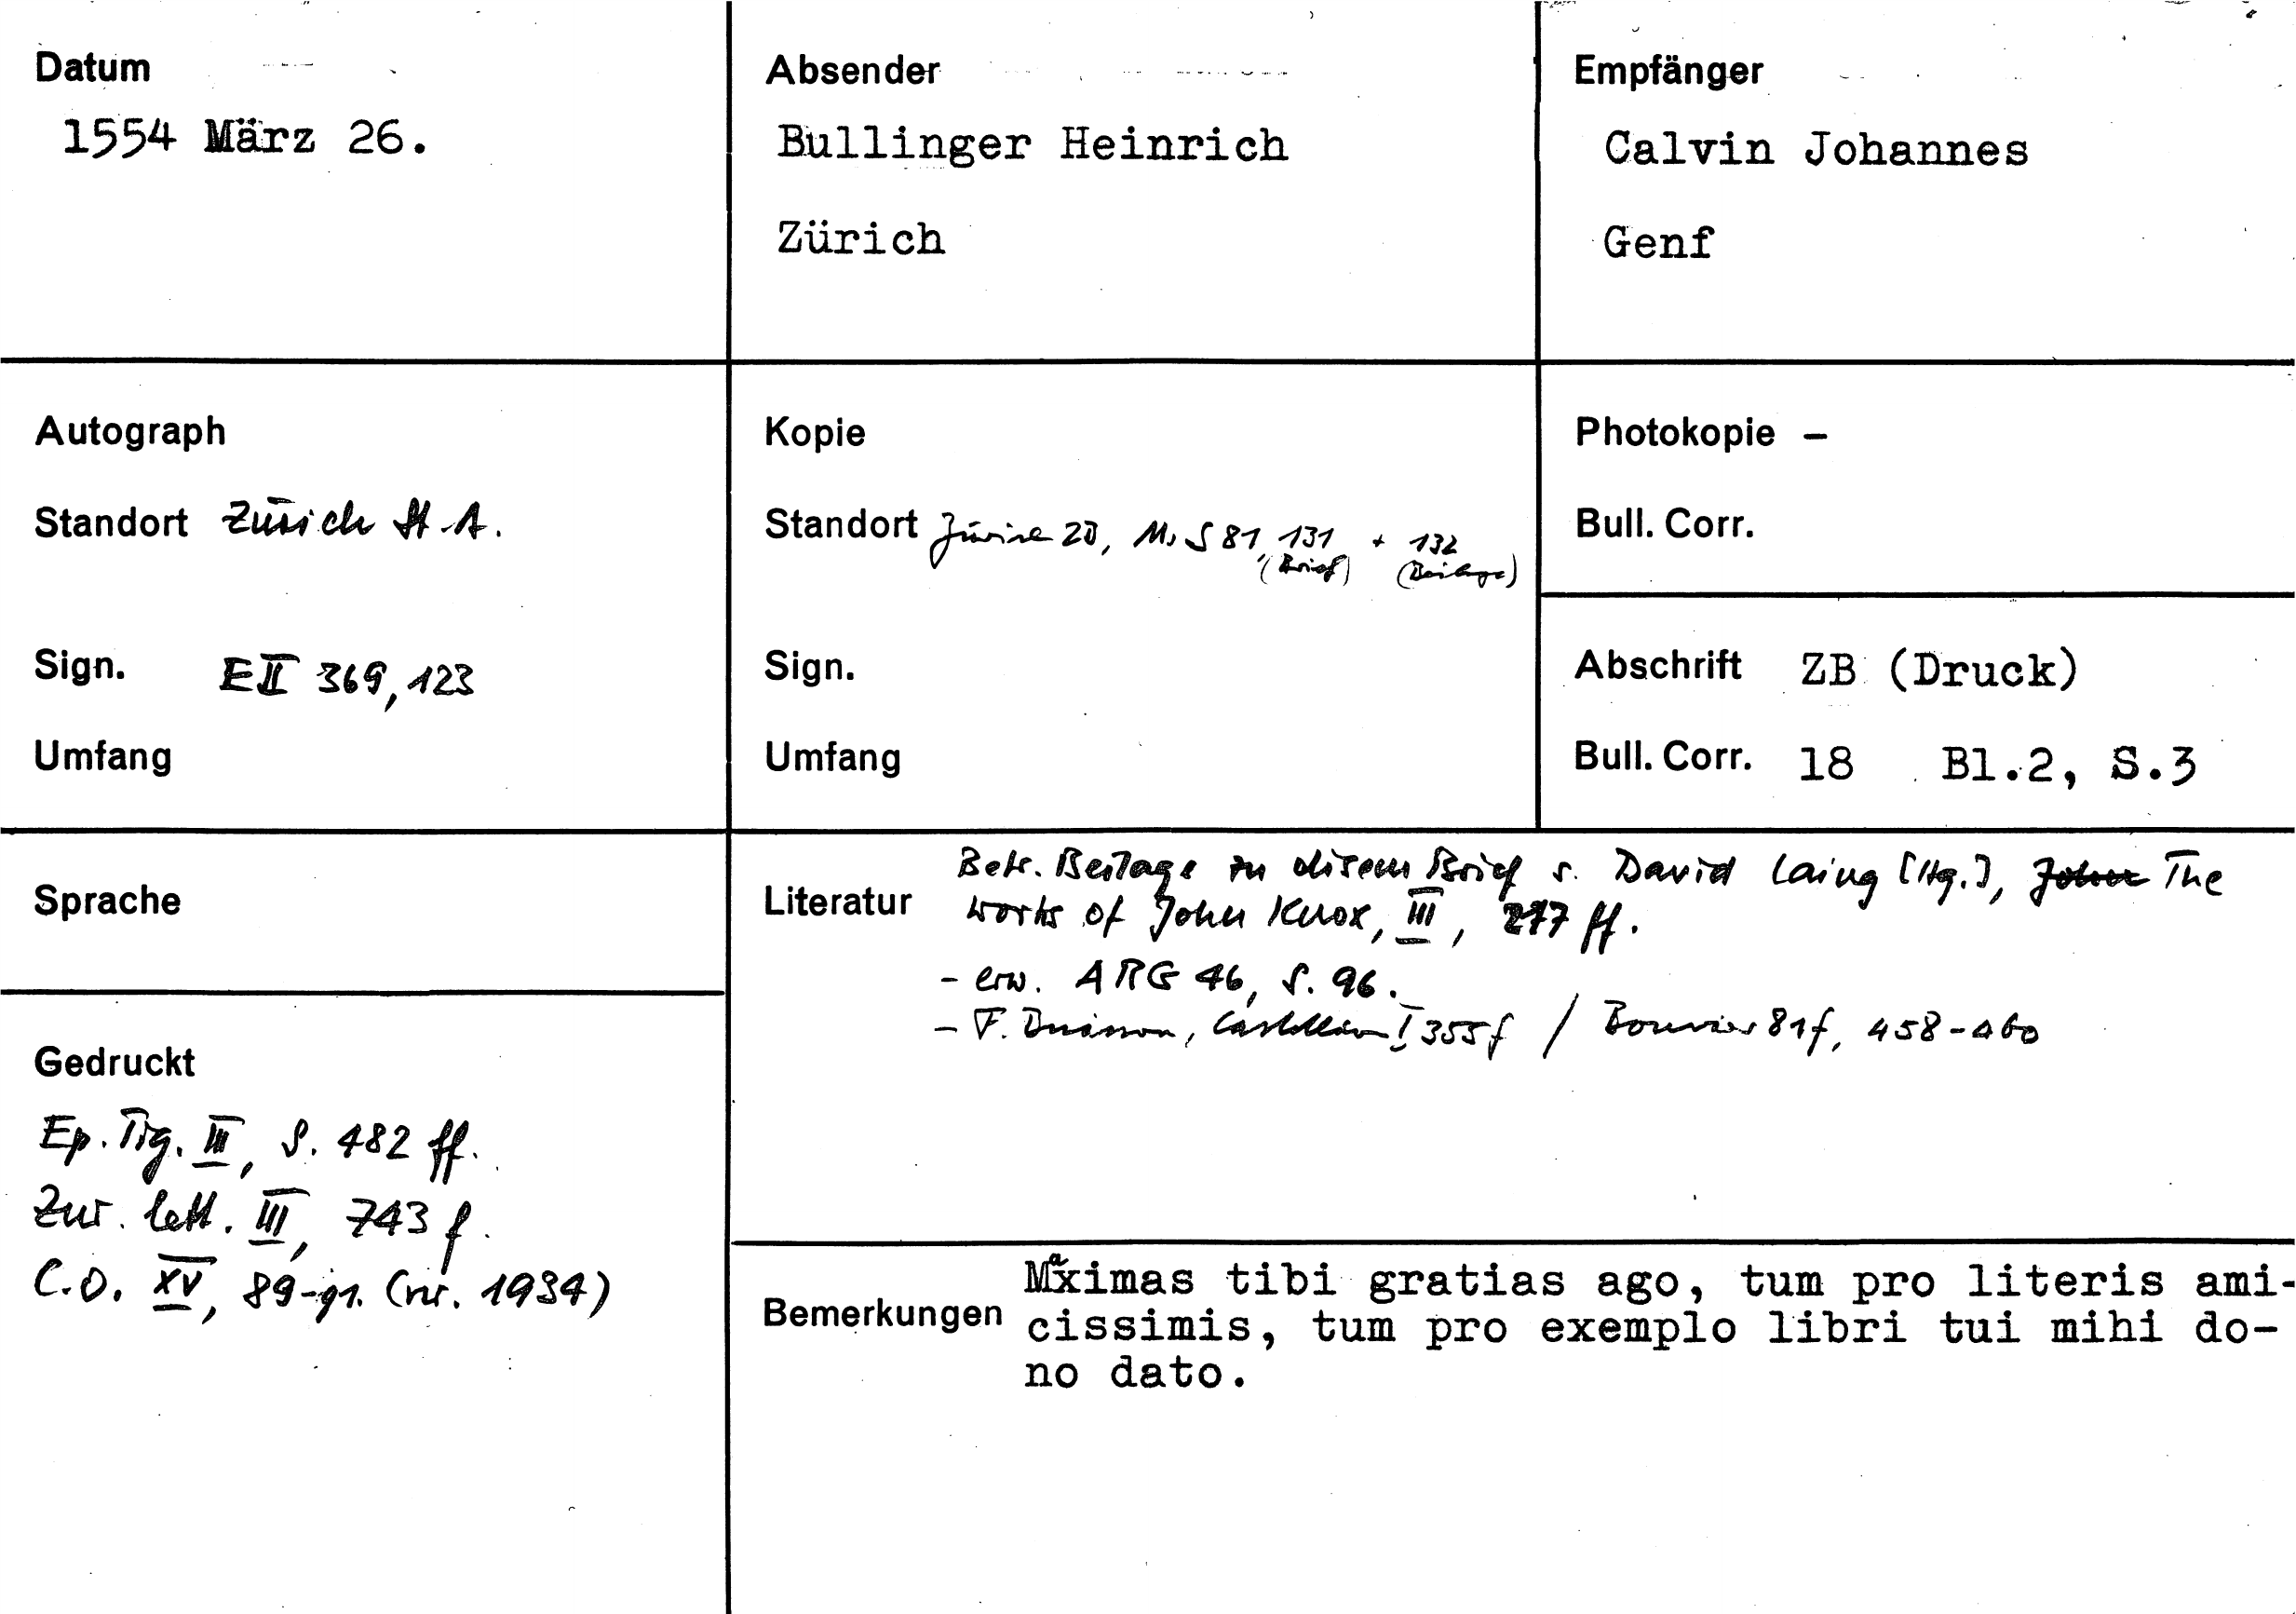 Datum
1554 März 26.
Absender
Bullinger Heinrich
Zürich
Empfänger
Calvin Johannes
Genf
Autograph
Standort Zürich StA.
Sign. E II 369, 123
Umfang
Kopie
Standort Zürich ZB, Ms S 81, 131 + 132
(Brief) (Beilage)
Sign.
Umfang
Photokopie –
Bull. Corr.
Abschrift ZB (Druck)
Bull. Corr. 18 Bl.2, S.3
Sprache
Gedruckt
Ep. Tig. III, S. 482 ff.
Zur. lett. III, 743 f.
C.O. XV, 89-91. (nr. 1934)
Literatur
Betr. Beilage zu disem Brief s. David Laing [Hg.], John The
works of John Knox, III, 217 ff.
- erw. ARG 46, S. 96.
- F. Buisson, Castellion I 355f / Bouvier 81f, 458-460
Bemerkungen
Maximas tibi gratias ago, tum pro literis ami-
cissimis, tum pro exemplo libri tui mihi do-
no dato.